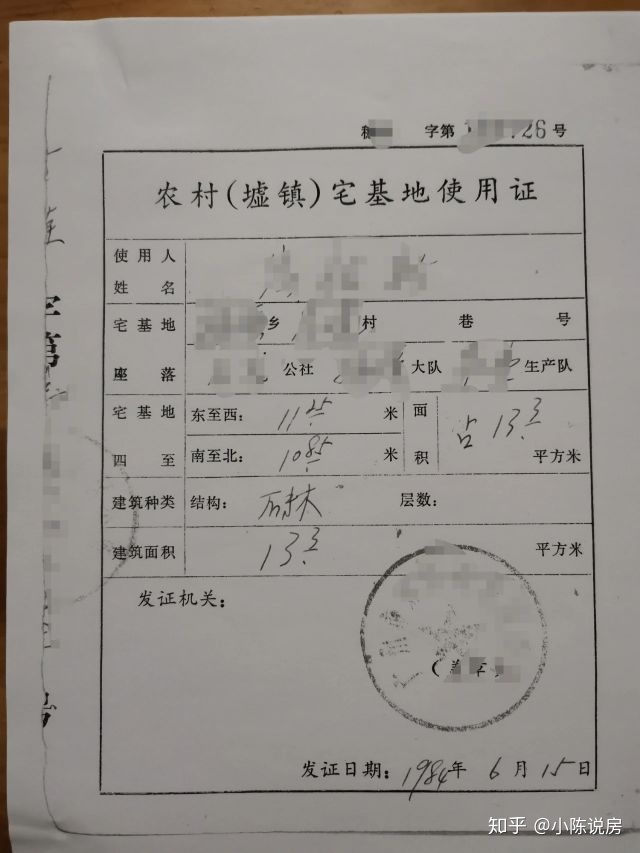 字第 26号
农村(墟镇)宅基地使用证
使用人
姓名
宅基地 乡 村 巷 号
座落 公社 大队 生产队
宅基地 东至西: 11.25 米 面
四至 南至北: 10.85 米 积 占 13.3 平方米
建筑种类 结构: 层数:
建筑面积 13.3 平方米
发证机关:
(盖章)
发证日期: 1984年 6月 15日
字第
号
知乎 @小陈说房